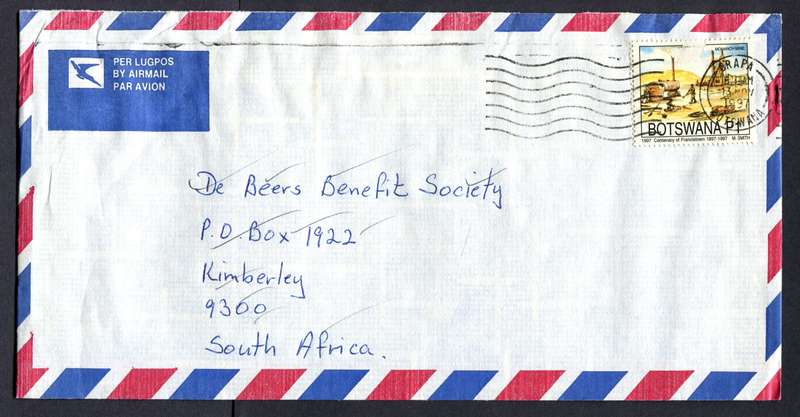 PER LUGPOS
BY AIRMAIL
PAR AVION
MONARCH MINE
ORAPA
BOTSWANA P1
1997 Centenary of Francistown 1897-1997 M. SMITH
De Beers Benefit Society
P.O. Box 1922
Kimberley
9300
South Africa.